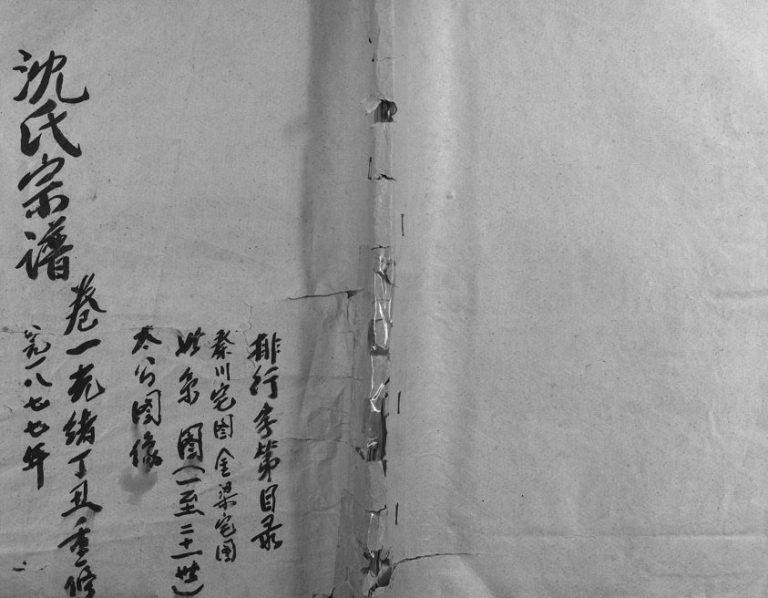 排行字第目录
秦川宅图金梁宅图
世系图(一至二十一世)
太公图像
卷一光绪丁丑重修
沈氏宗谱
公元一八七七年